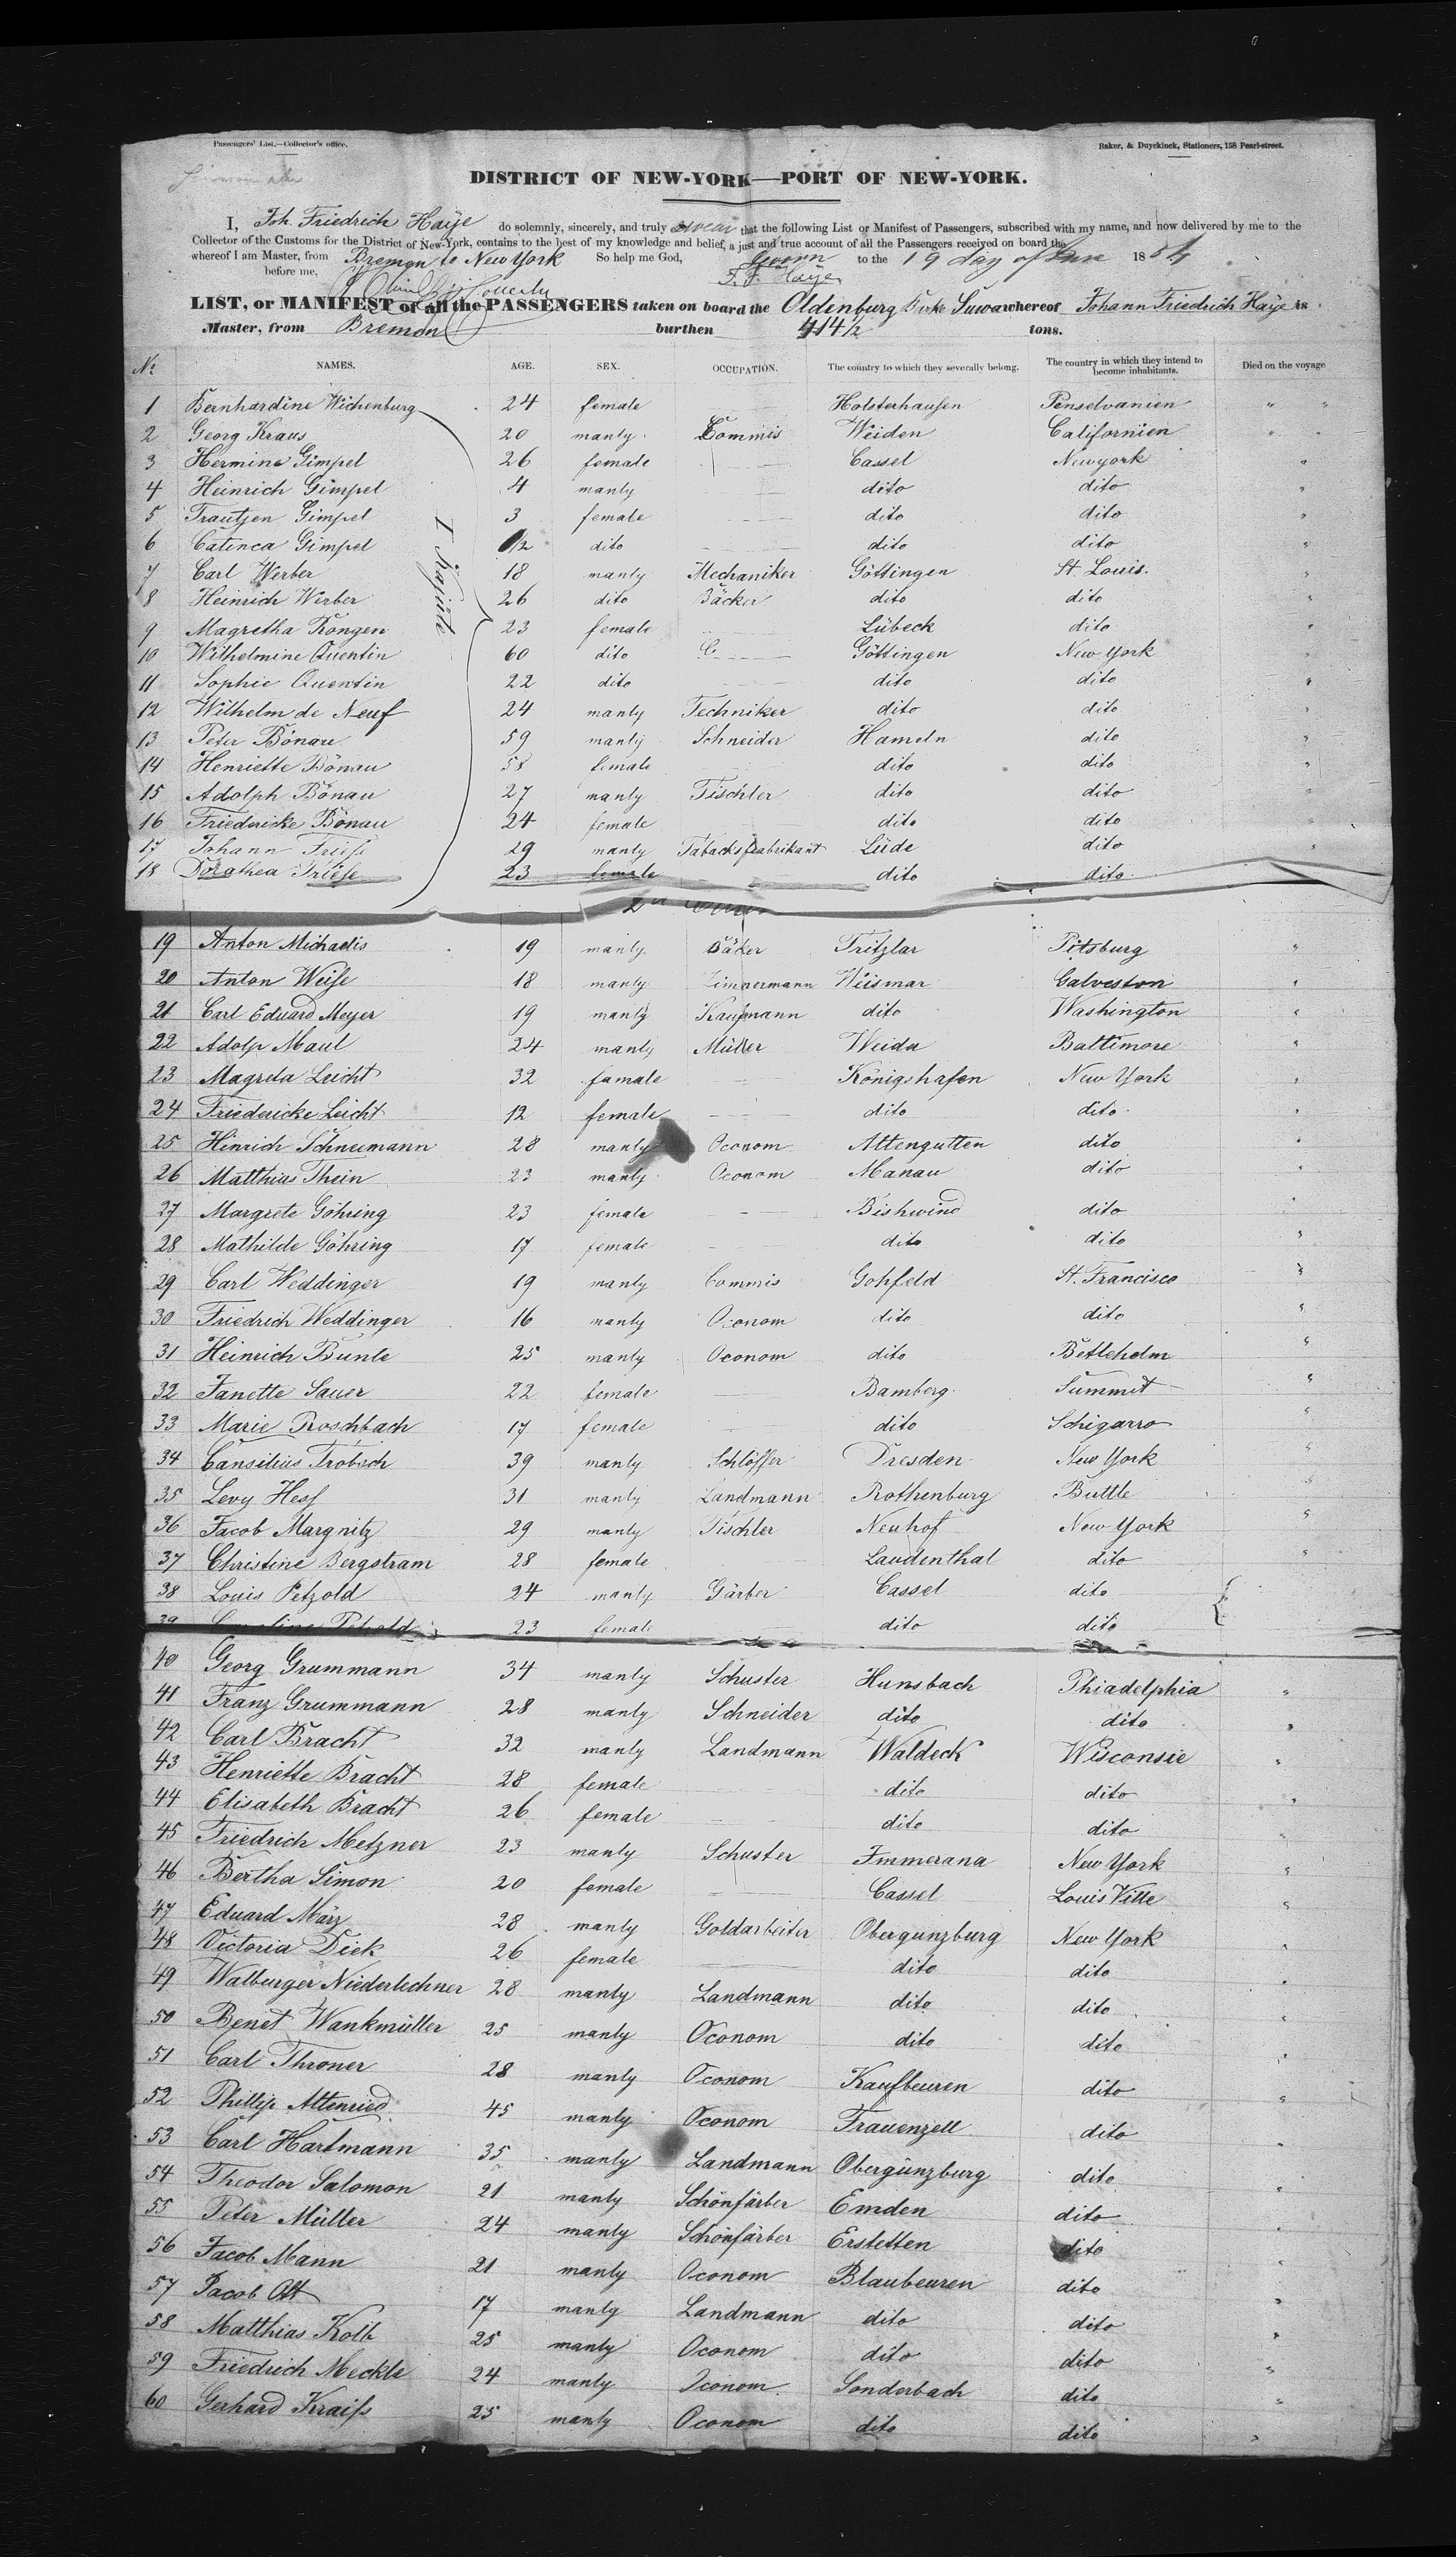 Passengers' List.—Collector's office.
Baker, & Duyckinck, Stationers, 158 Pearl-street.
DISTRICT OF NEW-YORK—PORT OF NEW-YORK.
I, Joh. Friedrich Haÿe do solemnly, sincerely, and truly swear that the following List or Manifest of Passengers, subscribed with my name, and now delivered by me to the
Collector of the Customs for the District of New-York, contains to the best of my knowledge and belief, a just and true account of all the Passengers received on board the
whereof I am Master, from Bremen to New York So help me God, Sworn to the 19 day of June 1854
before me, J. F. Haÿe
LIST, or MANIFEST of all the PASSENGERS taken on board the Oldenburg whereof Johann Friedrich Haÿe is
Master, from Bremen burthen 414 1/2 tons.
No NAMES. AGE. SEX. OCCUPATION. The country to which they severally belong. The country in which they intend to become inhabitants. Died on the voyage
I Kajüte
1 Bernhardine Wichenburg 24 female Holsterhausen Penselvanien " "
2 Georg Kraus 20 manly Commis Weiden Californien " "
3 Hermine Gimpel 26 female Cassel Newyork "
4 Heinrich Gimpel 4 manly dito dito "
5 Trautjen Gimpel 3 female dito dito "
6 Catinca Gimpel 1/2 dito dito dito "
7 Carl Werber 18 manly Mechaniker Göttingen St. Louis. "
8 Heinrich Werber 26 dito Bäcker dito dito "
9 Magretha Rongen 23 female Lübeck dito "
10 Wilhelmine Quentin 60 dito Göttingen New York "
11 Sophie Quentin 22 dito dito dito "
12 Wilhelm de Neuf 24 manly Techniker dito dito "
13 Peter Bönau 59 manly Schneider Hameln dito "
14 Henriette Bönau 58 female dito dito "
15 Adolph Bönau 27 manly Tischler dito dito "
16 Friedericke Bönau 24 female dito dito "
17 Johann Friese 29 manly Tabacksfabrikant Lüde dito "
18 Dorothea Friese 23 female dito dito
19 Anton Michaelis 19 manly Bäker Fritzlar Pitsburg "
20 Anton Weise 18 manly Zimmermann Weismar Galveston "
21 Carl Eduard Meyer 19 manly Kaufmann dito Washington "
22 Adolp Maul 24 manly Müller Weida Baltimore "
23 Magreta Leicht 32 famale Königshafen New York "
24 Friedericke Leicht 12 female dito dito "
25 Hinrich Schneemann 28 manly Oconom Attengutten dito "
26 Matthias Thein 23 manly Oconom Manau dito "
27 Margrete Göhring 23 female Bishwind dito "
28 Mathilde Göhring 17 female dito dito "
29 Carl Weddinger 19 manly Commis Gohfeld St. Francisco "
30 Friedrich Weddinger 16 manly Oconom dito dito "
31 Heinrich Bunte 25 manly Oconom dito Betlehelm "
32 Janette Sauer 22 female Bamberg Summit "
33 Marie Roschbach 17 female dito Schigarro "
34 Cansilius Trobsch 39 manly Schlösser Dresden New York "
35 Levy Hess 31 manly Landmann Rothenburg Buttle "
36 Jacob Margnitz 29 manly Tischler Neuhof New York "
37 Christine Bergstram 28 female Laudenthal dito "
38 Louis Petzold 24 manly Gärber Cassel dito
39 23 female dito dito
40 Georg Grummann 34 manly Schuster Hunsbach Phiadelphia "
41 Franz Grummann 28 manly Schneider dito dito "
42 Carl Bracht 32 manly Landmann Waldeck Wisconsie "
43 Henriette Bracht 28 female dito dito "
44 Elisabeth Bracht 26 female dito dito "
45 Friedrich Metzner 23 manly Schuster Immerana New York "
46 Bertha Simon 20 female Cassel Louis Ville "
47 Eduard März 28 manly Goldarbeiter Obergunzburg New York "
48 Victoria Diek 26 female dito dito "
49 Walburger Niederlechner 28 manly Landmann dito dito "
50 Benet Wankmüller 25 manly Oconom dito dito "
51 Carl Throner 28 manly Oconom Kaufbeuren dito "
52 Phillip Altenried 45 manly Oconom Frauenzell dito "
53 Carl Hartmann 35 manly Landmann Obergünzburg dito "
54 Theodor Salomon 21 manly Schönfärber Emden dito "
55 Peter Müller 24 manly Schönfärber Erstetten dito "
56 Jacob Mann 21 manly Oconom Blaubeuren dito "
57 Jacob Ott 17 manly Landmann dito dito "
58 Matthias Kolb 25 manly Oconom dito dito "
59 Friedrich Meckle 24 manly Oconom Sonderbach dito "
60 Gerhard Kraiss 25 manly Oconom dito dito "